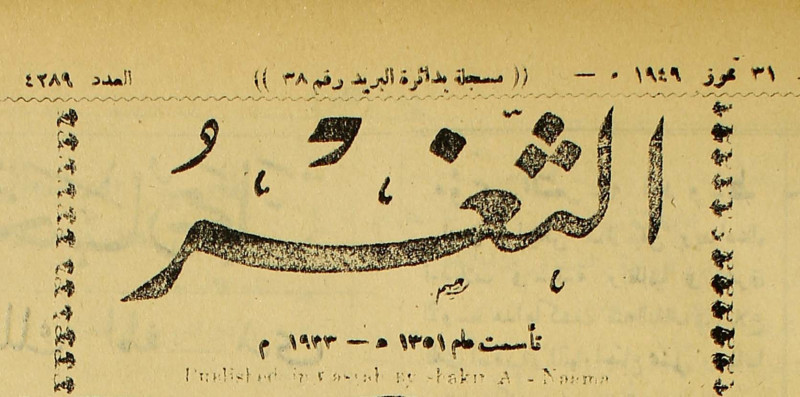 ٣١ تموز ١٩٤٩ ه — (( مسجلة بدائرة البريد رقم ٣٨ )) العدد ٤٢٨٩
الثغر
تأسست عام ١٣٥١ ه — ١٩٣٣ م
Published in Basrah by Shakir A. - Neema